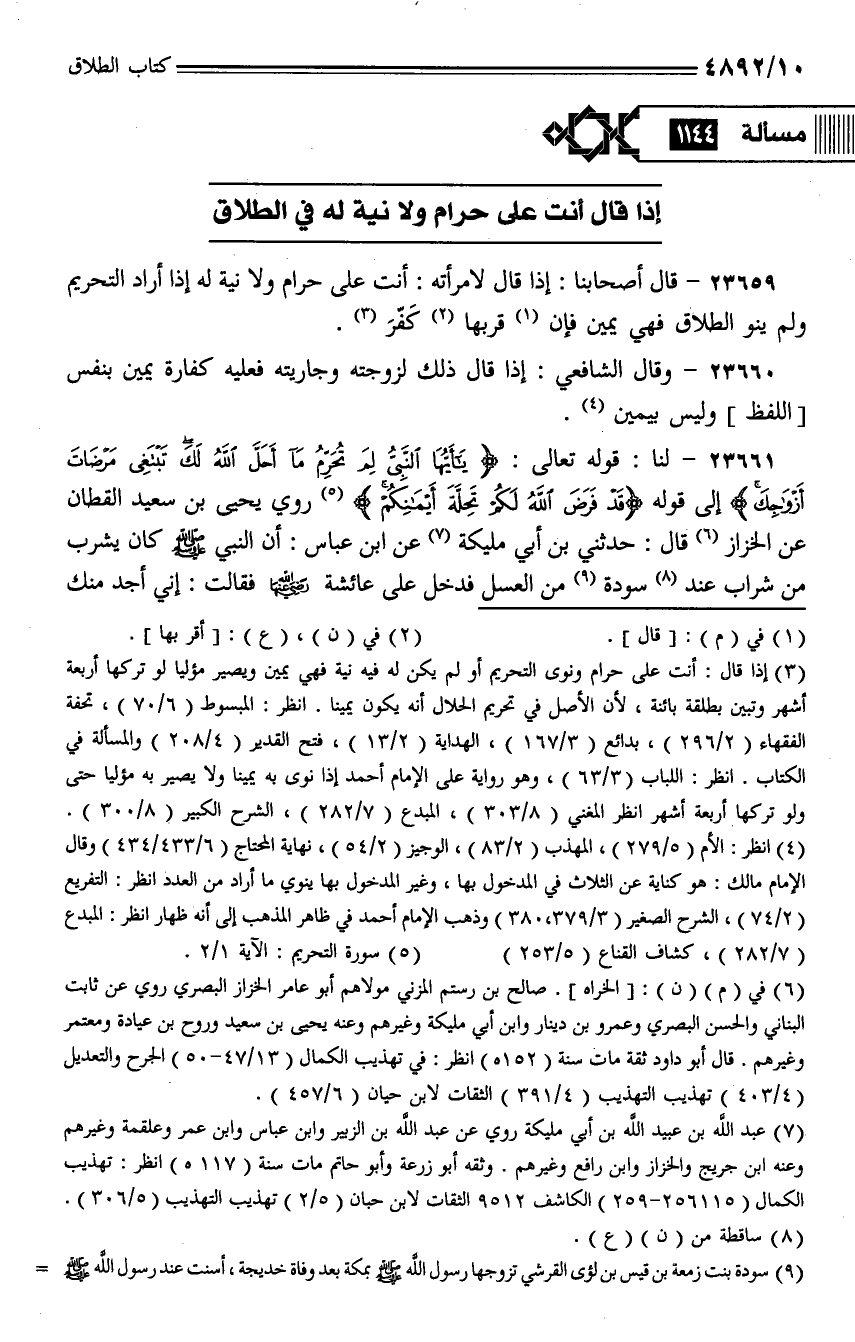 ٤٨٩٢/١٠ كتاب الطلاق
مسألة ١١٤٤
إذا قال أنت على حرام ولا نية له في الطلاق
٢٣٦٥٩ - قال أصحابنا : إذا قال لامرأته : أنت على حرام ولا نية له إذا أراد التحريم
ولم ينو الطلاق فهي يمين فإن (١) قربها (٢) كَفّرَ (٣) .
٢٣٦٦٠ - وقال الشافعي : إذا قال ذلك لزوجته وجاريته فعليه كفارة يمين بنفس
[ اللفظ ] وليس بيمين (٤) .
٢٣٦٦١ - لنا : قوله تعالى : ﴿ يَٰٓأَيُّهَا ٱلنَّبِىُّ لِمَ تُحَرِّمُ مَآ أَحَلَّ ٱللَّهُ لَكَۖ تَبْتَغِى مَرْضَاتَ
أَزْوَٰجِكَۚ ﴾ إلى قوله ﴿قَدْ فَرَضَ ٱللَّهُ لَكُمْ تَحِلَّةَ أَيْمَٰنِكُمْۚ ﴾ (٥) روي يحيى بن سعيد القطان
عن الخزاز (٦) قال : حدثني بن أبي مليكة (٧) عن ابن عباس : أن النبي ﷺ كان يشرب
من شراب عند (٨) سودة (٩) من العسل فدخل على عائشة رضي الله عنها فقالت : إني أجد منك
(١) في ( م ) : [ قال ] . (٢) في ( ن ) ، ( ع ) : [ أقر بها ] .
(٣) إذا قال : أنت على حرام ونوى التحريم أو لم يكن له فيه نية فهي يمين ويصير مؤليا لو تركها أربعة
أشهر وتبين بطلقة بائنة ، لأن الأصل في تحريم الحلال أنه يكون يمينا . انظر : المبسوط ( ٧٠/٦ ) ، تحفة
الفقهاء ( ٢٩٦/٢ ) ، بدائع ( ١٦٧/٣ ) ، الهداية ( ١٣/٢ ) ، فتح القدير ( ٢٠٨/٤ ) والمسألة في
الكتاب . انظر : اللباب ( ٦٣/٣ ) ، وهو رواية على الإمام أحمد إذا نوى به يمينا ولا يصير به مؤليا حتى
ولو تركها أربعة أشهر انظر المغني ( ٣٠٣/٨ ) ، المبدع ( ٢٨٢/٧ ) ، الشرح الكبير ( ٣٠٠/٨ ) .
(٤) انظر : الأم ( ٢٧٩/٥ ) ، المهذب ( ٨٣/٢ ) ، الوجيز ( ٥٤/٢ ) ، نهاية المحتاج ( ٤٣٤/٤٣٣/٦ ) وقال
الإمام مالك : هو كناية عن الثلاث في المدخول بها ، وغير المدخول بها ينوي ما أراد من العدد انظر : التفريع
( ٧٤/٢ ) ، الشرح الصغير ( ٣٨٠،٣٧٩/٣ ) وذهب الإمام أحمد في ظاهر المذهب إلى أنه ظهار انظر : المبدع
( ٢٨٢/٧ ) ، كشاف القناع ( ٢٥٣/٥ ) (٥) سورة التحريم : الآية ٢/١ .
(٦) في ( م ) ( ن ) : [ الخراه ] . صالح بن رستم المزني مولاهم أبو عامر الخزاز البصري روي عن ثابت
البناني والحسن البصري وعمرو بن دينار وابن أبي مليكة وغيرهم وعنه يحيى بن سعيد وروح بن عيادة ومعتمر
وغيرهم . قال أبو داود ثقة مات سنة ( ١٥٢ه ) انظر : في تهذيب الكمال ( ٤٧/١٣-٥٠ ) الجرح والتعديل
( ٤٠٣/٤ ) تهذيب التهذيب ( ٣٩١/٤ ) الثقات لابن حيان ( ٤٥٧/٦ ) .
(٧) عبد اللَّه بن عبيد اللَّه بن أبي مليكة روي عن عبد اللَّه بن الزبير وابن عباس وابن عمر وعلقمة وغيرهم
وعنه ابن جريج والخزاز وابن رافع وغيرهم . وثقه أبو زرعة وأبو حاتم مات سنة ( ١١٧ ه ) انظر : تهذيب
الكمال ( ٢٥٦١١٥-٢٥٩ ) الكاشف ٩٥١٢ الثقات لابن حبان ( ٢/٥ ) تهذيب التهذيب ( ٣٠٦/٥ ) .
(٨) ساقطة من ( ن ) ( ع ) .
(٩) سودة بنت زمعة بن قيس بن لؤى القرشي تزوجها رسول اللَّه ﷺ بمكة بعد وفاة خديجة ، أسنت عند رسول اللَّه ﷺ =